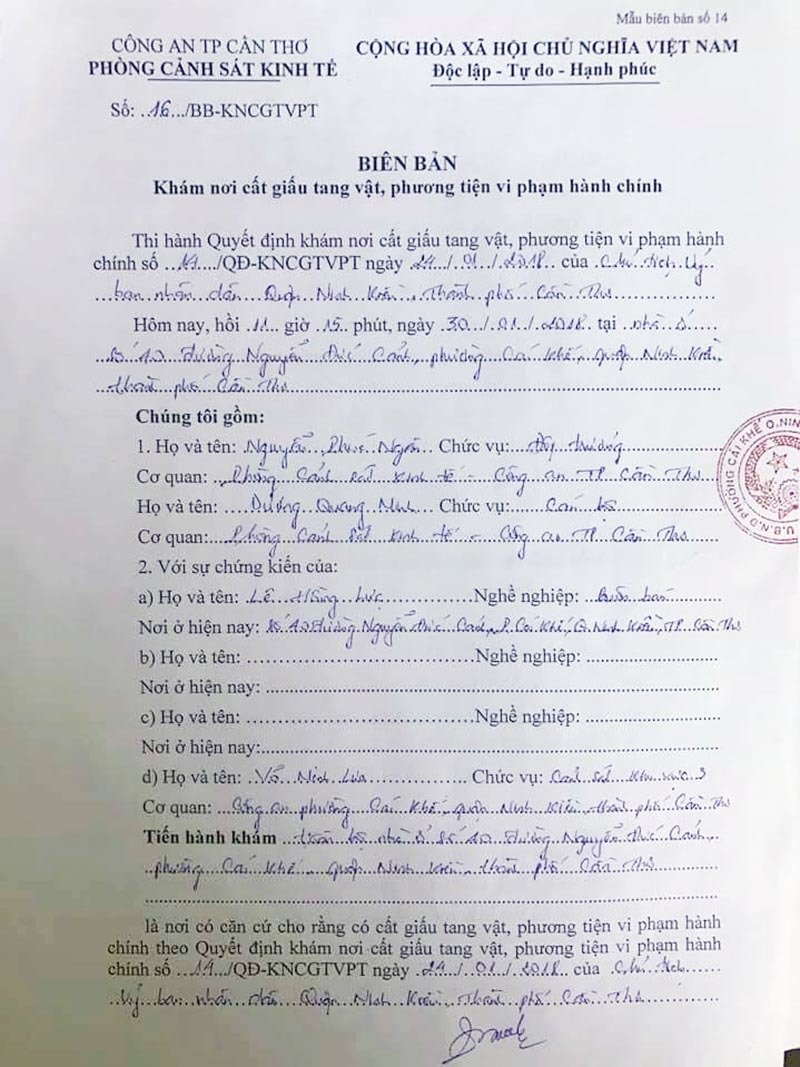 Mẫu biên bản số 14
CÔNG AN TP CẦN THƠ
PHÒNG CẢNH SÁT KINH TẾ
CỘNG HÒA XÃ HỘI CHỦ NGHĨA VIỆT NAM
Độc lập - Tự do - Hạnh phúc
Số: ..16.../BB-KNCGTVPT
BIÊN BẢN
Khám nơi cất giấu tang vật, phương tiện vi phạm hành chính
Thi hành Quyết định khám nơi cất giấu tang vật, phương tiện vi phạm hành
chính số ..../QĐ-KNCGTVPT ngày 24../.01../.2018.. của ..Chủ tịch Uỷ
ban nhân dân Quận Ninh Kiều, Thành phố Cần Thơ
Hôm nay, hồi .11.. giờ .15.. phút, ngày .30../.01../.2018.. tại ..nhà số
đường Nguyễn Đức Cảnh, phường Cái Khế, quận Ninh Kiều
thành phố Cần Thơ
Chúng tôi gồm:
1. Họ và tên: Nguyễn Ngân.. Chức vụ:....Đội trưởng
Cơ quan: ..Phòng Cảnh sát Kinh tế - Công an TP Cần Thơ
Họ và tên: ....Dương Quang Minh.. Chức vụ:......Cán bộ
Cơ quan:....Phòng Cảnh sát Kinh tế - Công an TP Cần Thơ
2. Với sự chứng kiến của:
a) Họ và tên: Lê Hồng Lực..........Nghề nghiệp: ..buôn bán
Nơi ở hiện nay: đường Nguyễn Đức Cảnh, P. Cái Khế, Q. Ninh Kiều, TP Cần Thơ
b) Họ và tên: ..........Nghề nghiệp: ..........
Nơi ở hiện nay: ..........
c) Họ và tên: ..........Nghề nghiệp: ..........
Nơi ở hiện nay:..........
d) Họ và tên: ..Võ Minh .......... Chức vụ: Cảnh sát khu vực 3
Cơ quan: ..Công an phường Cái Khế, quận Ninh Kiều, thành phố Cần Thơ
Tiến hành khám ...toàn bộ nhà số đường Nguyễn Đức Cảnh,
phường Cái Khế, quận Ninh Kiều, thành phố Cần Thơ
là nơi có căn cứ cho rằng có cất giấu tang vật, phương tiện vi phạm hành
chính theo Quyết định khám nơi cất giấu tang vật, phương tiện vi phạm hành
chính số ..../QĐ-KNCGTVPT ngày ..24../.01../.2018.. của ..Chủ tịch
Uỷ ban nhân dân Quận Ninh Kiều, Thành phố Cần Thơ
U.B.N.D PHƯỜNG CÁI KHẾ Q.NIN